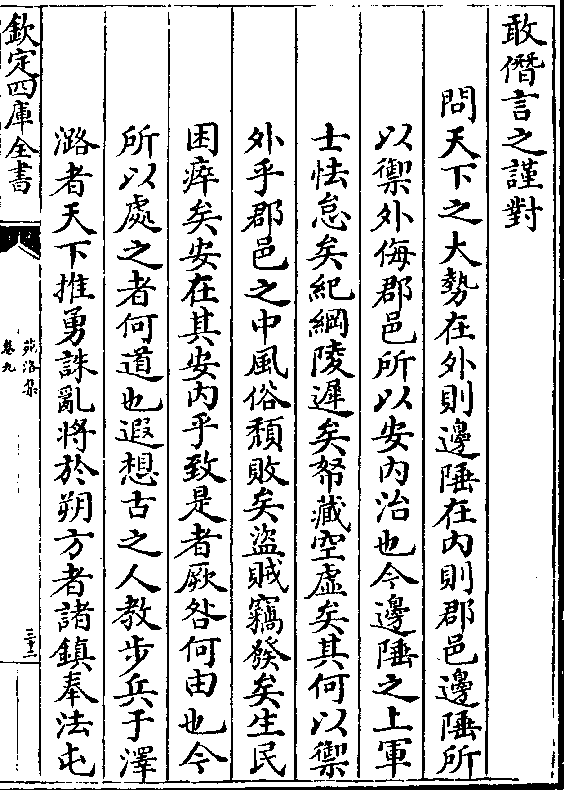 敢僭言之謹對
問天下之大勢在外則邊陲在內則郡邑邊陲所
以禦外侮郡邑所以安內治也今邊陲之上軍
士怯怠矣紀綱陵遲矣帑藏空虛矣其何以禦
外乎郡邑之中風俗頹敗矣盜賊竊發矣生民
困瘁矣安在其安內乎致是者厥咎何由也今
所以處之者何道也遐想古之人教步兵于澤
潞者天下推勇誅亂將於朔方者諸鎮奉法屯
欽定四庫全書
苑洛集
卷九
三十二